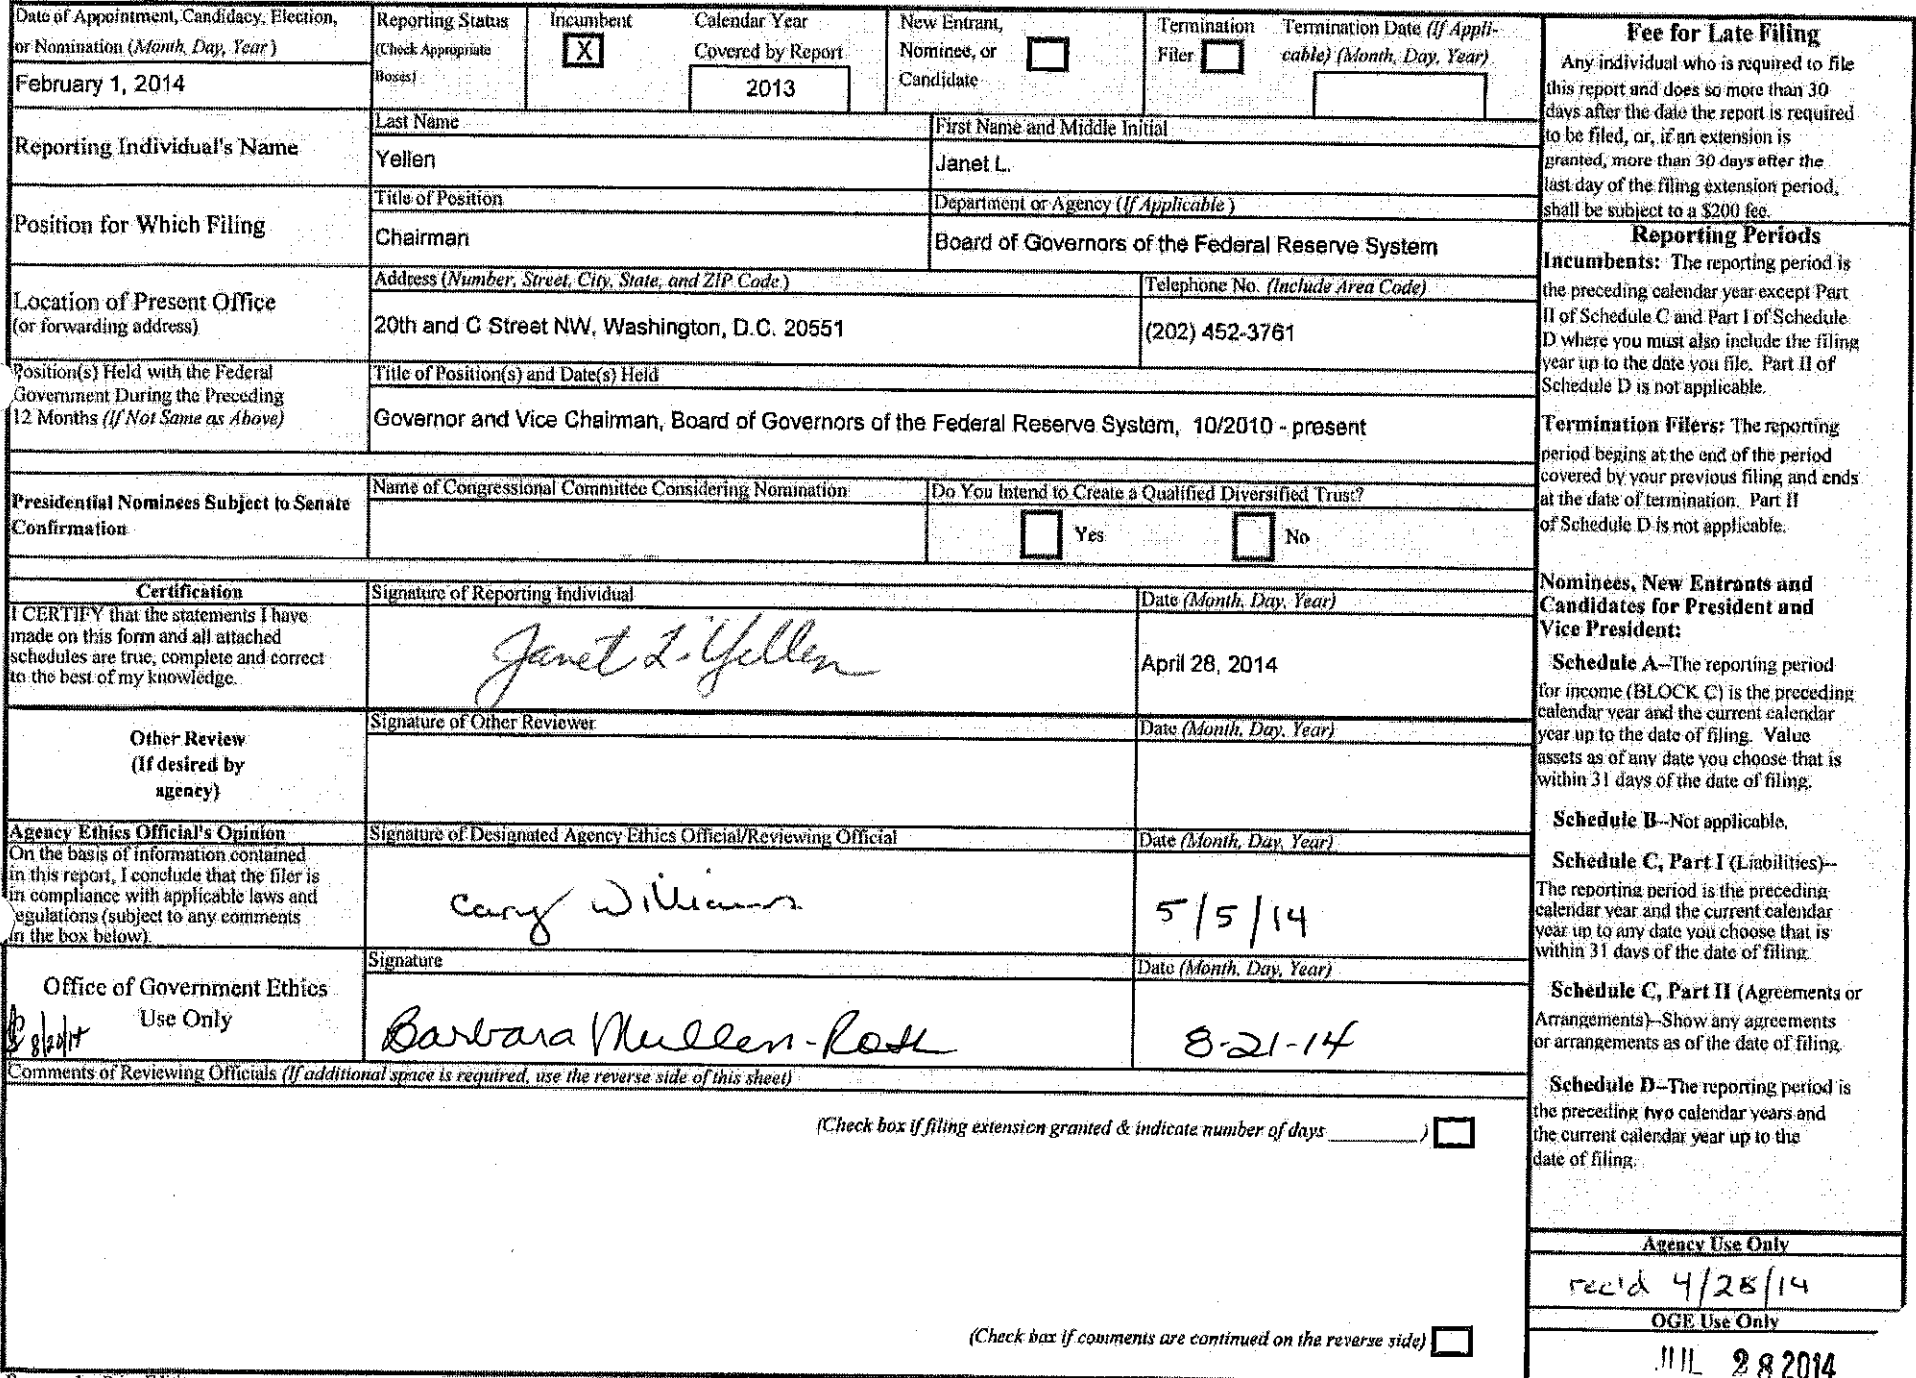 Date of Appointment, Candidacy, Election,
or Nomination (Month, Day, Year)
February 1, 2014
Reporting Status
(Check Appropriate
Boxes)
Incumbent
X
Calendar Year
Covered by Report
2013
New Entrant,
Nominee, or
Candidate
Termination
Filer
Termination Date (If Appli-
cable) (Month, Day, Year)
Reporting Individual's Name
Last Name
Yellen
First Name and Middle Initial
Janet L.
Position for Which Filing
Title of Position
Chairman
Department or Agency (If Applicable)
Board of Governors of the Federal Reserve System
Location of Present Office
(or forwarding address)
Address (Number, Street, City, State, and ZIP Code)
20th and C Street NW, Washington, D.C. 20551
Telephone No. (Include Area Code)
(202) 452-3761
Position(s) Held with the Federal
Government During the Preceding
12 Months (If Not Same as Above)
Title of Position(s) and Date(s) Held
Governor and Vice Chairman, Board of Governors of the Federal Reserve System, 10/2010 - present
Presidential Nominees Subject to Senate
Confirmation
Name of Congressional Committee Considering Nomination
Do You Intend to Create a Qualified Diversified Trust?
Yes
No
Certification
I CERTIFY that the statements I have
made on this form and all attached
schedules are true, complete and correct
to the best of my knowledge.
Signature of Reporting Individual
Janet L. Yellen
Date (Month, Day, Year)
April 28, 2014
Other Review
(If desired by
agency)
Signature of Other Reviewer
Date (Month, Day, Year)
Agency Ethics Official's Opinion
On the basis of information contained
in this report, I conclude that the filer is
in compliance with applicable laws and
regulations (subject to any comments
in the box below).
Signature of Designated Agency Ethics Official/Reviewing Official
Cary Williams
Date (Month, Day, Year)
5/5/14
Office of Government Ethics
Use Only
8/20/14
Signature
Barbara Mullen-Roth
Date (Month, Day, Year)
8-21-14
Comments of Reviewing Officials (If additional space is required, use the reverse side of this sheet)
(Check box if filing extension granted & indicate number of days ________ )
(Check box if comments are continued on the reverse side)
Fee for Late Filing
Any individual who is required to file
this report and does so more than 30
days after the date the report is required
to be filed, or, if an extension is
granted, more than 30 days after the
last day of the filing extension period,
shall be subject to a $200 fee.
Reporting Periods
Incumbents: The reporting period is
the preceding calendar year except Part
II of Schedule C and Part I of Schedule
D where you must also include the filing
year up to the date you file. Part II of
Schedule D is not applicable.
Termination Filers: The reporting
period begins at the end of the period
covered by your previous filing and ends
at the date of termination. Part II
of Schedule D is not applicable.
Nominees, New Entrants and
Candidates for President and
Vice President:
Schedule A--The reporting period
for income (BLOCK C) is the preceding
calendar year and the current calendar
year up to the date of filing. Value
assets as of any date you choose that is
within 31 days of the date of filing.
Schedule B--Not applicable.
Schedule C, Part I (Liabilities)--
The reporting period is the preceding
calendar year and the current calendar
year up to any date you choose that is
within 31 days of the date of filing.
Schedule C, Part II (Agreements or
Arrangements)--Show any agreements
or arrangements as of the date of filing.
Schedule D--The reporting period is
the preceding two calendar years and
the current calendar year up to the
date of filing.
Agency Use Only
rec'd 4/28/14
OGE Use Only
JUL 28 2014